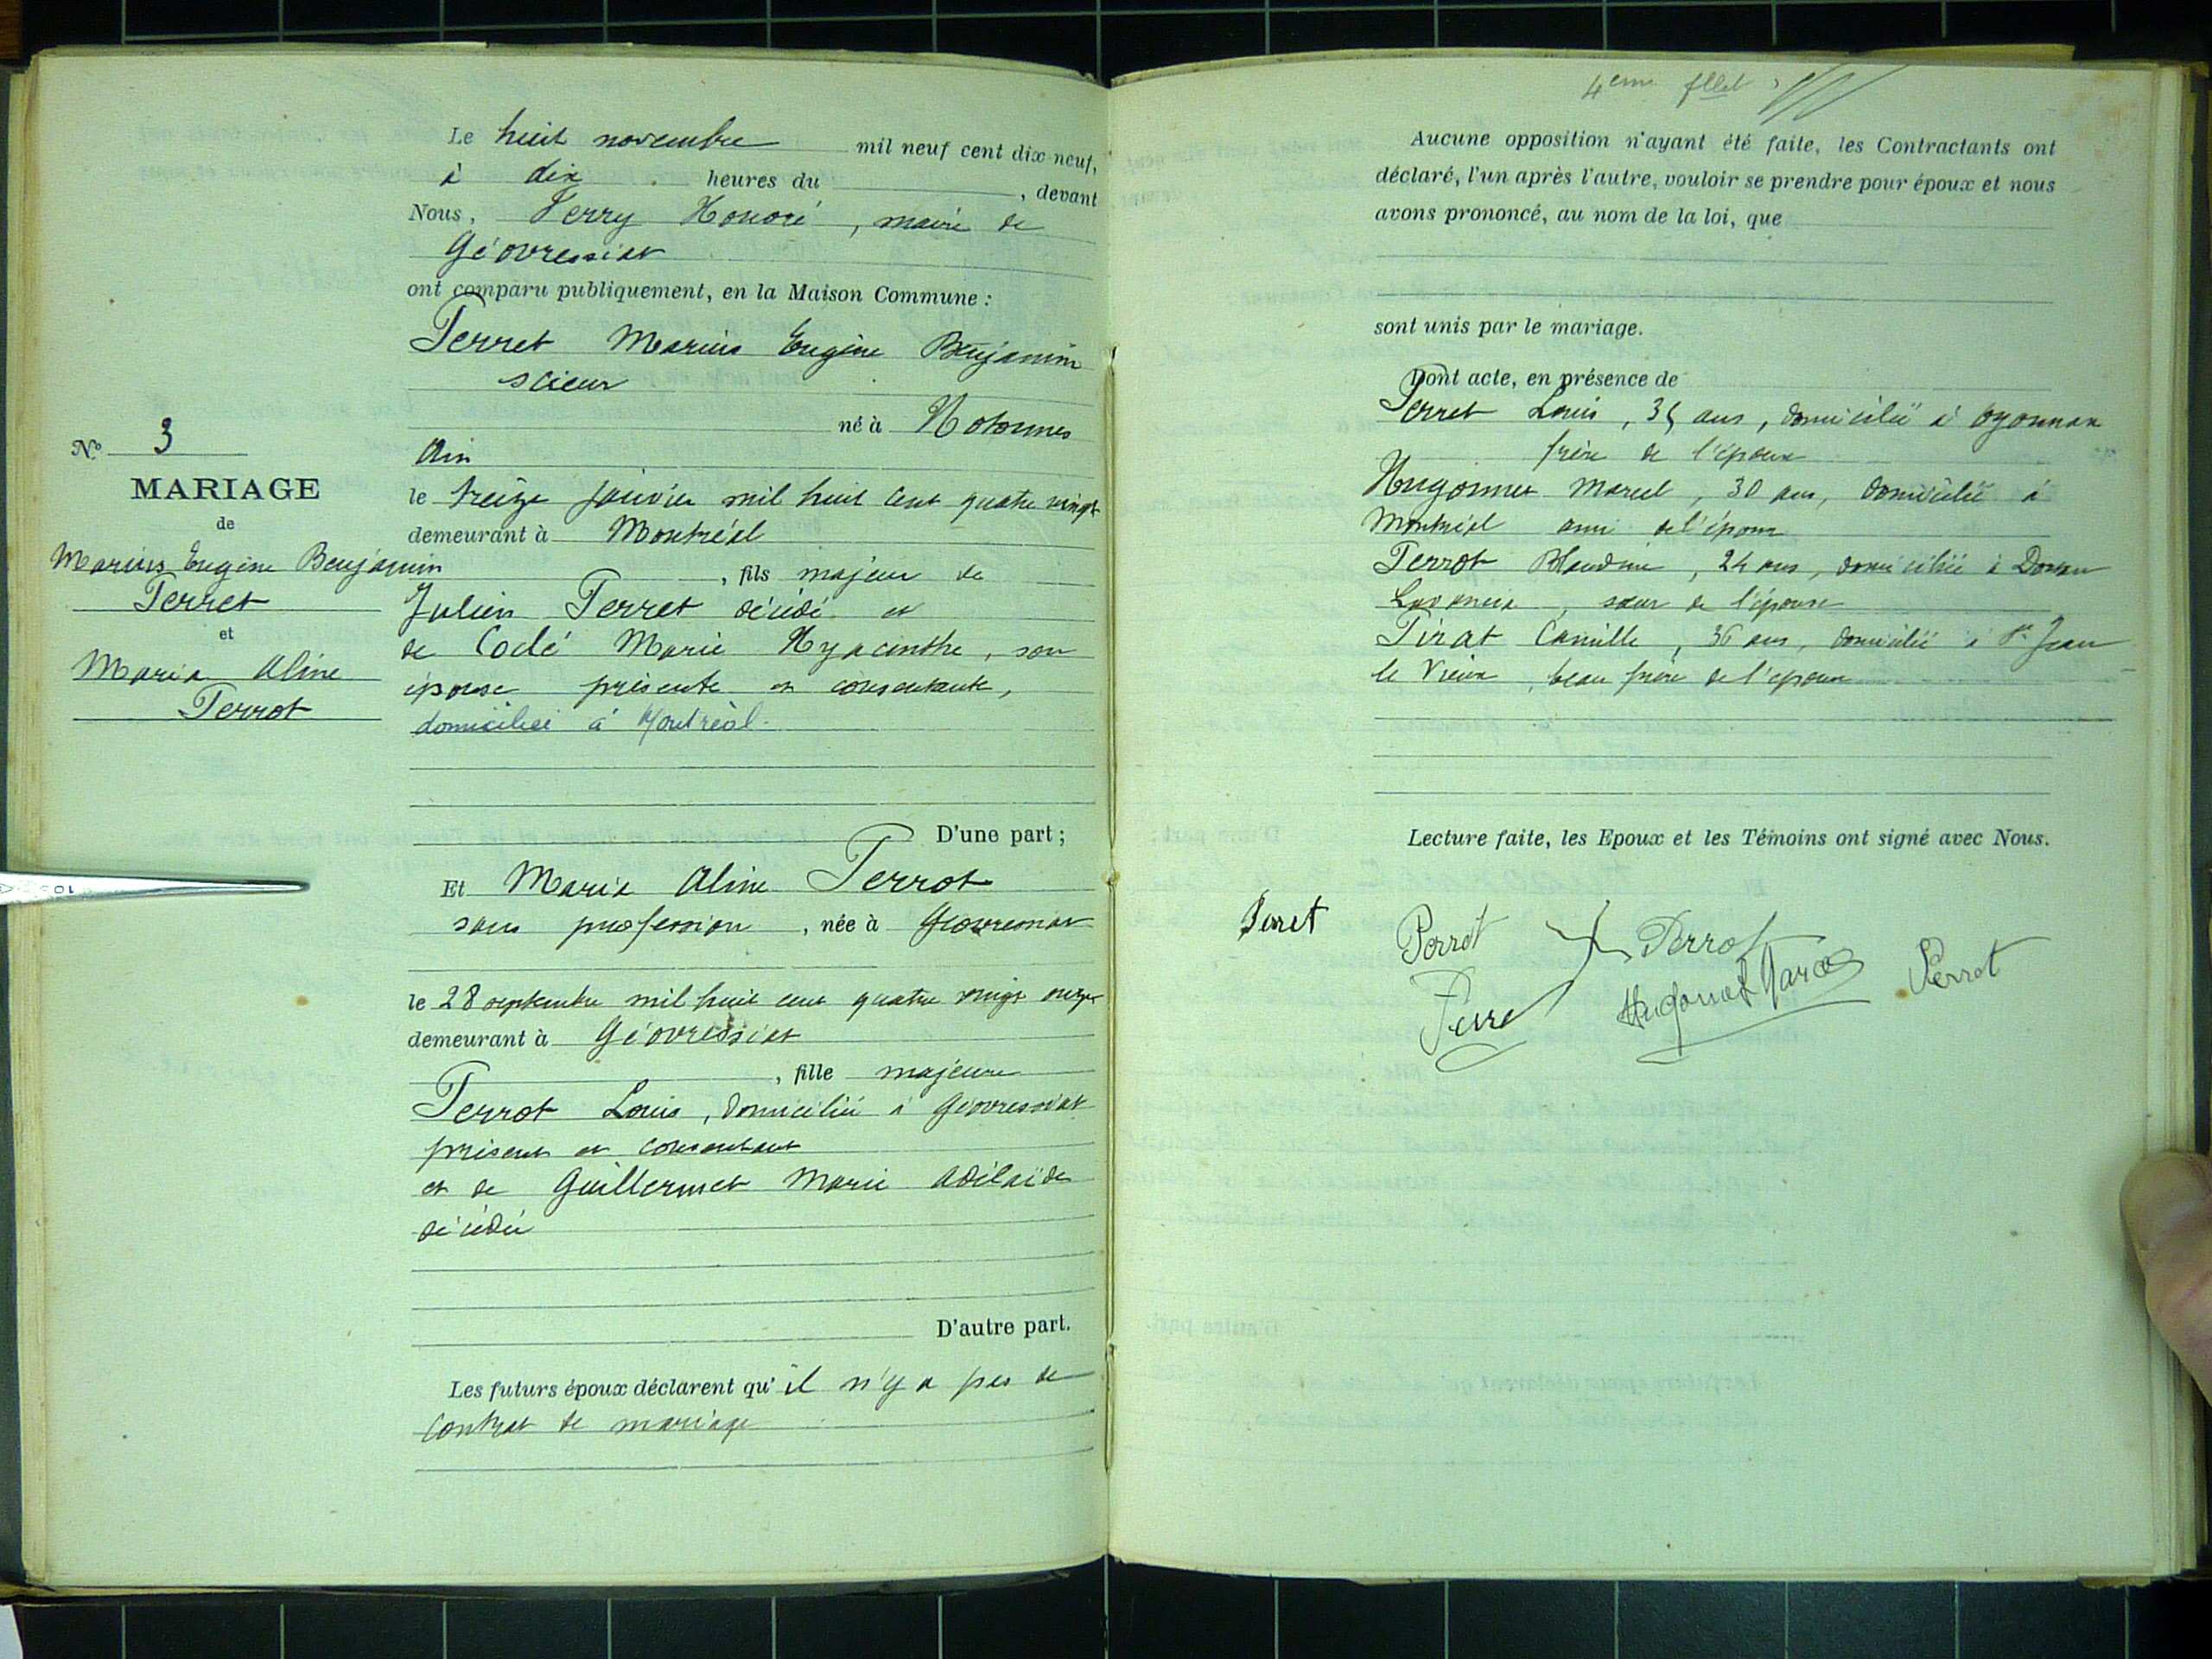 Le huit novembre mil neuf cent dix-neuf,
à dix heures du , devant
Nous, Ferry Honoré, maire de
Géovressiat
ont comparu publiquement, en la Maison Commune :
Perret Marius Eugène Benjamin
scieur
né à Hotonnes
Ain
le treize janvier mil huit cent quatre vingt
demeurant à Montréal
, fils majeur de
Julien Perret décédé et
de Marie Hyacinthe, son
épouse présente et consentante,
domiciliée à Montréal.
D'une part ;
N° 3
MARIAGE
de
Marius Eugène Benjamin
Perret
et
Maria Aline
Perrot
Et Maria Aline Perrot
sans profession, née à Géovressiat
le 28 septembre mil huit cent quatre vingt onze
demeurant à Géovressiat
, fille majeure
Perrot Louis, domicilié à Géovressiat
présent et consentant
et de Guillermet Marie Adélaïde
décédée
D'autre part.
Les futurs époux déclarent qu'il n'y a pas de
contrat de mariage
4eme fllet
Aucune opposition n'ayant été faite, les Contractants ont
déclaré, l'un après l'autre, vouloir se prendre pour époux et nous
avons prononcé, au nom de la loi, que
sont unis par le mariage.
Dont acte, en présence de
Perret Louis, 35 ans, domicilié à Oyonnax
frère de l'époux
Hugonnet Marcel, 30 ans, domicilié à
Montréal ami de l'époux
Perrot Blandine, 24 ans, domiciliée à Dortan
Lavancia, sœur de l'épouse
Pirat Camille, 36 ans, domicilié à St Jean
le Vieux, beau frère de l'époux
Lecture faite, les Epoux et les Témoins ont signé avec Nous.
Perret
Perrot
Perrot
Hugonnet Marcel
Perret